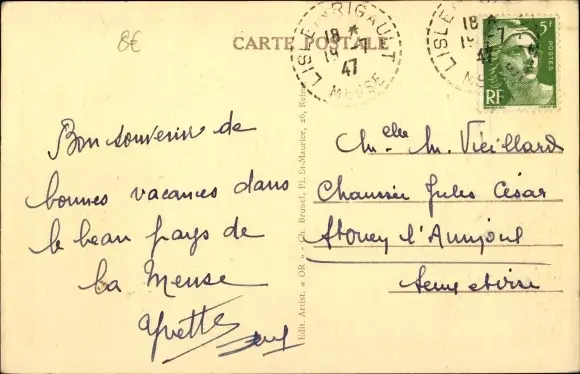 8€
CARTE POSTALE
LISLE EN RIGAULT
18 *
19 - 7
47
MEUSE
LISLE
18 *
19 - 7
47
5F
POSTES
RF
Bon souvenir de
bonnes vacances dans
le beau pays de
la Meuse
Yvette
Edit. Artist. « OR » - Ch. Brunel, Pl. St-Maurice, 26, Reims
Melle M. Vieillard
Chaussée Jules César
l'
Seine et Oise